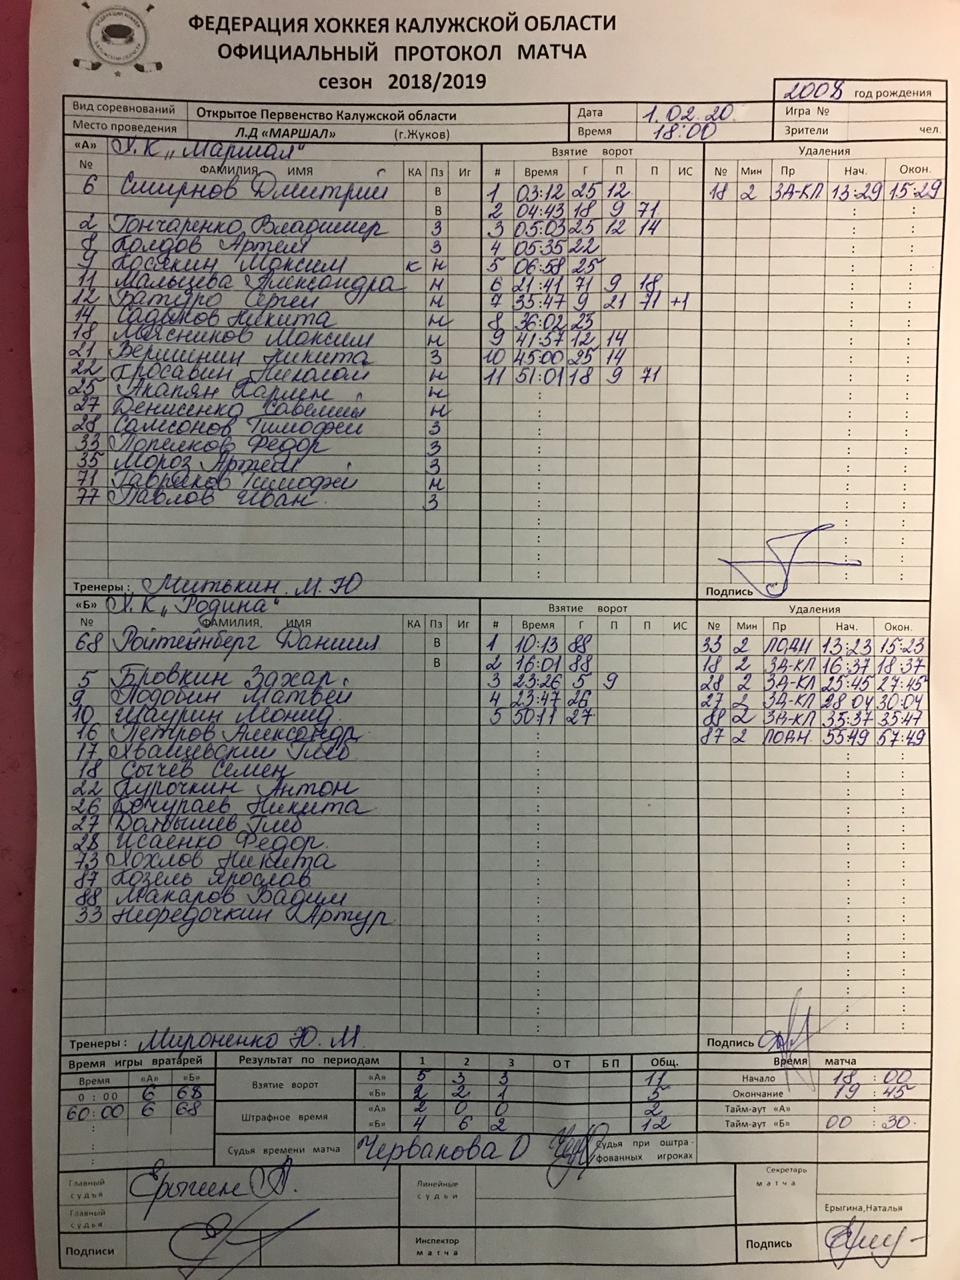 ФЕДЕРАЦИЯ ХОККЕЯ КАЛУЖСКОЙ ОБЛАСТИ
ОФИЦИАЛЬНЫЙ ПРОТОКОЛ МАТЧА
сезон 2018/2019
2008 год рождения
Вид соревнований Открытое Первенство Калужской области Дата 1.02.20 Игра №
Место проведения Л.Д «МАРШАЛ» (г.Жуков) Время 18:00 Зрители чел.
«А» Х.К „Маршал“ Взятие ворот Удаления
№ ФАМИЛИЯ, ИМЯ КА Пз Иг # Время Г П П ИС № Мин Пр Нач. Окон.
6 Смирнов Дмитрий В 1 03:12 25 12 18 2 ЗД-КЛ 13:29 15:29
В 2 04:43 18 9 71
2 Гончаренко Владимир З 3 05:03 25 12 14
8 Колдов Артем З 4 05:35 22
9 Косякин Максим К Н 5 06:58 25
11 Мальцева Александра Н 6 21:41 71 9 18
12 Батуро Сергей Н 7 35:47 9 21 71 +1
14 Садыков Никита Н 8 36:02 25
18 Мясников Максим Н 9 41:37 12 14
21 Вершинин Никита З 10 45:00 25 14
22 Просавин Николай Н 11 51:01 18 9 71
25 Акапян Карлен Н
27 Денисенко Савелий Н
28 Самсонов Тимофей З
33 Попелков Федор З
35 Мороз Артем З
71 Гавриков Тимофей Н
77 Павлов Иван З
Тренеры: Митькин М.Ю Подпись
«Б» Х.К „Родина“ Взятие ворот Удаления
№ ФАМИЛИЯ, ИМЯ КА Пз Иг # Время Г П П ИС № Мин Пр Нач. Окон.
68 Ройтенберг Даниил В 1 10:13 88 33 2 ПОДН 13:23 15:23
В 2 16:01 88 18 2 ЗД-КЛ 16:37 18:37
5 Бровкин Захар 3 23:26 5 9 28 2 ЗД-КЛ 25:45 27:45
9 Подобин Матвей 4 23:47 26 27 2 ЗД-КЛ 28 04 30:04
10 Шаурин Леонид 5 50 11 27 88 2 ЗД-КЛ 35:37 35:47
16 Петров Александр 87 2 ПОДН 55 49 57:49
17 Хващевский Глеб
18 Сычев Семен
22 Курочкин Антон
26 Качураев Никита
27 Долбышев Глеб
28 Исаенко Федор
73 Хохлов Никита
87 Козель Ярослав
88 Макаров Вадим
33 Нефедочкин Артур
Тренеры: Мироненко Ю.М Подпись
Время игры вратарей Результат по периодам 1 2 3 ОТ БП Общ. Время матча
Время «А» «Б» Взятие ворот «А» 5 3 3 11 Начало 18:00
0:00 6 68 «Б» 2 2 1 5 Окончание 19:45
60:00 6 68 Штрафное время «А» 2 0 0 2 Тайм-аут «А»
«Б» 4 6 2 12 Тайм-аут «Б» 00:30
Судья времени матча Черванова О Судья при оштрафованных игроках
Главный судья Ерыгин А. Линейные судьи Секретарь матча
Главный судья Ерыгина,Наталья
Подписи Инспектор матча Подпись